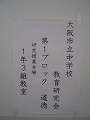 大阪市立中学校
教育研究会
第1ブロック 道徳
研究授業会場
1年3組教室